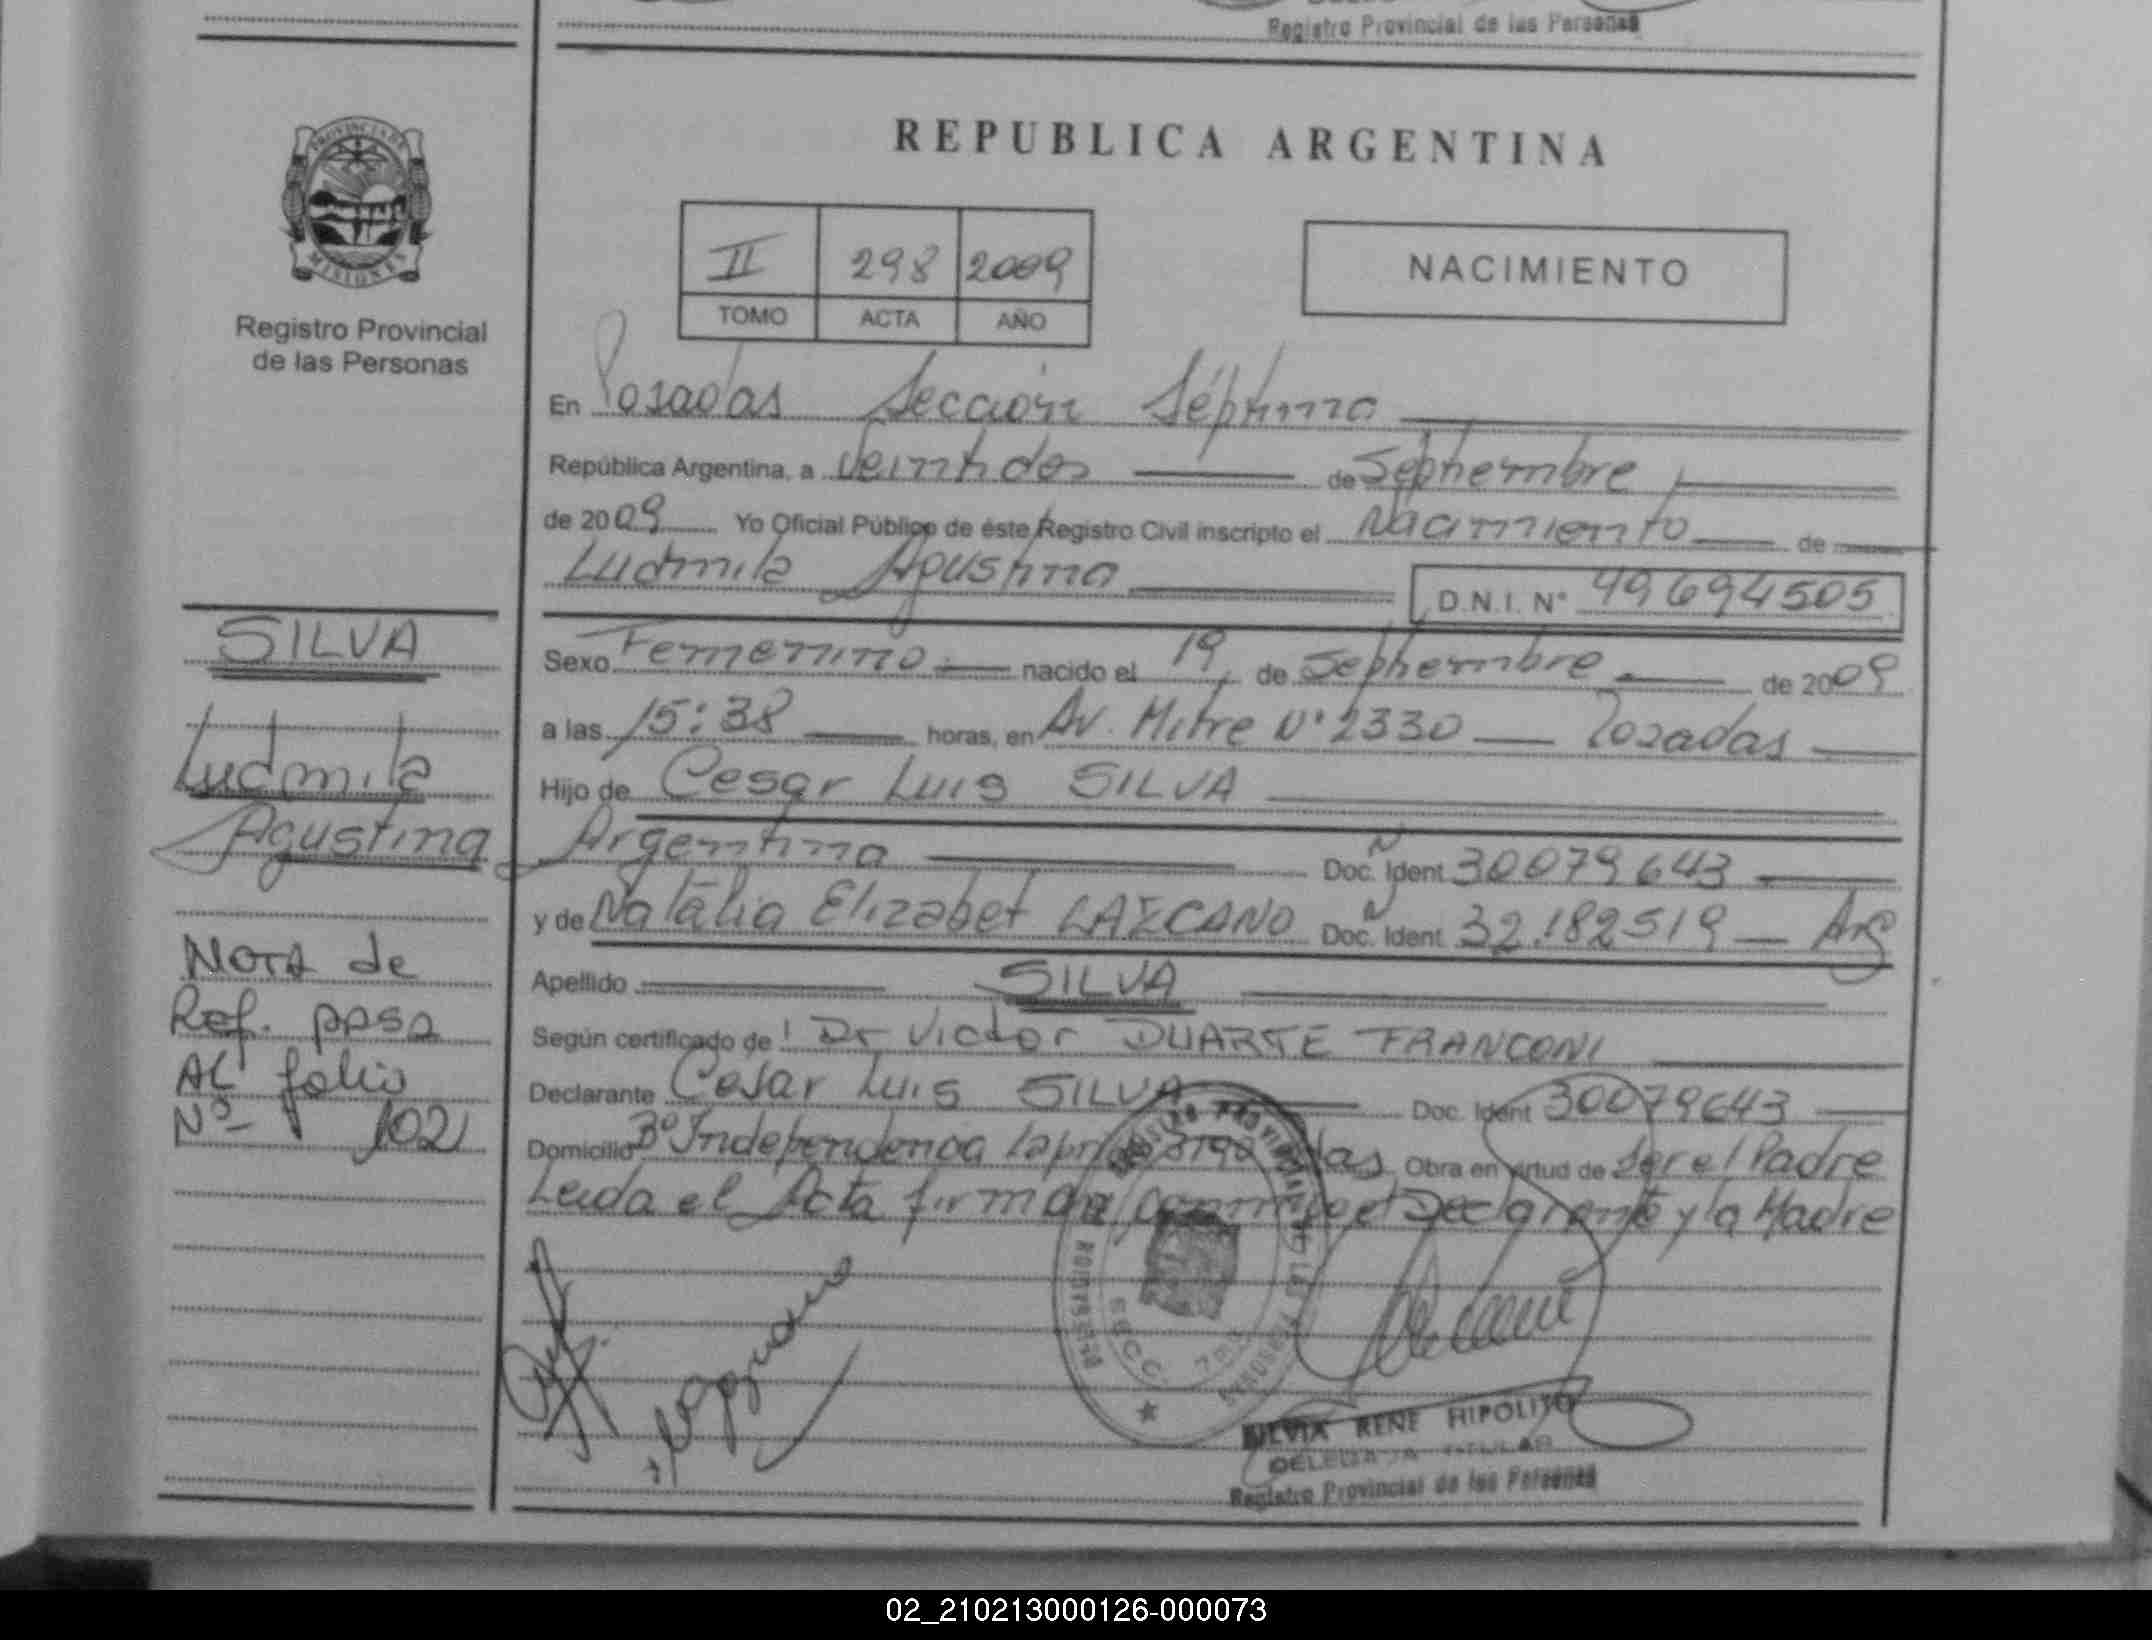 Registro Provincial de las Personas
PROVINCIA DE
MISIONES
Registro Provincial
de las Personas
REPUBLICA ARGENTINA
II 298 2009
TOMO ACTA AÑO
NACIMIENTO
En Posadas Sección Séptima
República Argentina, a Veintidos de Septiembre
de 2009 Yo Oficial Público de éste Registro Civil inscripto el Nacimiento de
Ludmila Agustina
D.N.I. N° 49694505
Sexo Femenino nacido el 19 de Septiembre de 2009
a las 15:38 horas, en Av. Mitre N° 2330 Posadas
Hijo de Cesar Luis SILVA
Argentina Doc. Ident 30079643
y de Natalia Elizabet Doc. Ident 32.182519 Arg
Apellido SILVA
Según certificado de Dr Victor DUARTE FRANCONI
Declarante Cesar Luis SILVA Doc. Ident 30079643
Domicilio Bº Independencia Obra en virtud de Ser el Padre
Leida el Acta firman conmigo el Declarante y la Madre
SILVA
Ludmila
Agustina
Nota de
Ref. pasa
AL folio
Nº 102
SILVIA RENE HIPOLITO
DELEGADA TITULAR
Registro Provincial de las Personas
02_210213000126-000073